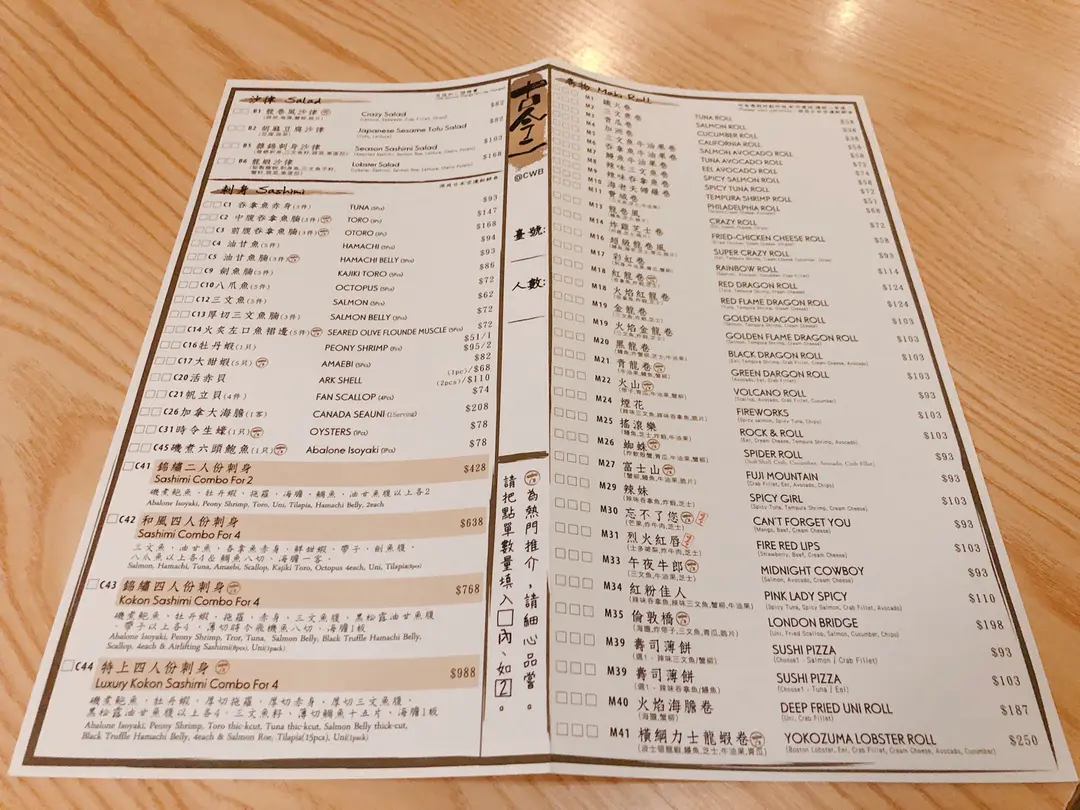 沙律 Salad
B1 龍卷風沙律 Crazy Salad $82
B2 胡麻豆腐沙律 Japanese Sesame Tofu Salad $82
B5 雜錦刺身沙律 Season Sashimi Salad $103
B6 龍蝦沙律 Lobster Salad $168
刺身 Sashimi
C1 吞拿魚赤身(3件) TUNA (3Pcs) $93
C2 中腹吞拿魚腩(3件) TORO $147
C3 前腹吞拿魚腩(3件) OTORO $168
C4 油甘魚(5件) HAMACHI (5Pcs) $94
C5 油甘魚腩(5件) HAMACHI BELLY $93
C9 劍魚腩(5件) KAJIKI TORO (5Pcs) $86
C10 八爪魚(5件) OCTOPUS (5Pcs) $72
C12 三文魚(5件) SALMON (5Pcs) $62
C13 厚切三文魚腩 SALMON BELLY $72
C14 火炙左口魚裙邊(5件) SEARED OLIVE FLOUNDE MUSCLE (5Pcs) $72
C16 牡丹蝦(1只) PEONY SHRIMP $51/1
$95/2
C17 大甜蝦(5只) AMAEBI (5Pcs) $82
C20 活赤貝 ARK SHELL (1pc)/$68
(2pcs)/$110
C21 帆立貝(4件) FAN SCALLOP (4Pcs) $74
C26 加拿大海膽(1客) CANADA SEAUNI (1Serving) $208
C31 時令生蠔(1只) OYSTERS (1Pcs) $78
C45 磯煮六頭鮑魚(1只) Abalone Isoyaki (1Pcs) $78
C41 錦繡二人份刺身 $428
Sashimi Combo For 2
磯煮鮑魚、牡丹蝦、拖羅、海膽、鯛魚、油甘魚腹以上各2
Abalone Isoyaki, Peony Shrimp, Toro, Uni, Tilapia, Hamachi Belly, 2each
C42 和風四人份刺身 $638
Sashimi Combo For 4
三文魚、油甘魚、吞拿魚赤身、鮮甜蝦、帶子、劍魚腹、
八爪魚以上各4&鯛魚八切、海膽一客
Salmon, Hamachi, Tuna, Amaebi, Scallop, Kajiki Toro, Octopus 4each, Uni, Tilapia
C43 錦繡四人份刺身 $768
Kokon Sashimi Combo For 4
磯煮鮑魚、牡丹蝦、拖羅、赤身、三文魚腹、黑松露油甘魚腹
、帶子以上各4、薄切時令飛機魚八切、海膽1板
Abalone Isoyaki, Peony Shrimp, Tror, Tuna, Salmon Belly, Black Truffle Hamachi Belly,
Scallop, 4each & Airlifting Sashimi(8pcs), Uni(1pack)
C44 特上四人份刺身 $988
Luxury Kokon Sashimi Combo For 4
磯煮鮑魚、牡丹蝦、厚切拖羅、厚切赤身、厚切三文魚腹、
黑松露油甘魚腹以上各4、三文魚籽、薄切鯛魚十五片、海膽1板
Abalone Isoyaki, Peony Shrimp, Toro thic-kcut, Tuna thic-kcut, Salmon Belly thick-cut,
Black Truffle Hamachi Belly, 4each & Salmon Roe, Tilapia(15pcs), Uni(1pack)
@CWB
臺號:
人數:
為熱門推介，請細心品嘗。
請把點單數量填入□內、如2。
卷物 Maki Roll
M1 鐵火卷 TUNA ROLL $58
M2 三文魚卷 SALMON ROLL
M3 青瓜卷 CUCUMBER ROLL
M4 加洲卷 CALIFORNIA ROLL
M5 三文魚牛油果卷 SALMON AVOCADO ROLL
M6 吞拿魚牛油果卷 TUNA AVOCADO ROLL
M7 鰻魚牛油果卷 EEL AVOCADO ROLL
M8 辣味三文魚卷 SPICY SALMON ROLL
M9 辣味吞拿魚卷 SPICY TUNA ROLL
M10 海老天婦羅卷 TEMPURA SHRIMP ROLL
M11 費城卷 PHILADELPHIA ROLL
M13 龍卷風 CRAZY ROLL $72
M14 炸雞芝士卷 FRIED-CHICKEN CHEESE ROLL $58
M16 超級龍卷風 SUPER CRAZY ROLL $93
M17 彩虹卷 RAINBOW ROLL $114
M18 紅龍卷 RED DRAGON ROLL $124
M18 火焰紅龍卷 RED FLAME DRAGON ROLL $124
M19 金龍卷 GOLDEN DRAGON ROLL $103
M19 火焰金龍卷 GOLDEN FLAME DRAGON ROLL $103
M20 黑龍卷 BLACK DRAGON ROLL $103
M21 青龍卷 GREEN DARGON ROLL $103
M22 火山 VOLCANO ROLL $93
M24 煙花 FIREWORKS $103
M25 搖滾樂 ROCK & ROLL $103
M26 蜘蛛 SPIDER ROLL $93
M27 富士山 FUJI MOUNTAIN $93
M29 辣妹 SPICY GIRL $103
M30 忘不了您 CAN'T FORGET YOU $93
(芒果,炸牛肉,芝士) (Mango, Beef, Cream Cheese)
M31 烈火紅唇 FIRE RED LIPS $103
(士多啤梨,炸牛肉,芝士) (Strawberry, Beef, Cream Cheese)
M33 午夜牛郎 MIDNIGHT COWBOY $93
(三文魚,牛油果,芝士) (Salmon, Avocado, Cream Cheese)
M34 紅粉佳人 PINK LADY SPICY $110
(辣味吞拿魚,辣味三文魚,蟹柳,牛油果) (Spicy Tuna, Spicy Salmon, Crab Fillet, Avocado)
M35 倫敦橋 LONDON BRIDGE $198
(海膽,炸帶子,三文魚,青瓜,脆片) (Uni, Fried Scallop, Salmon, Cucumber, Chips)
M39 壽司薄餅 SUSHI PIZZA $93
(選1 - 辣味三文魚/蟹柳) (Choose1 - Salmon / Crab Fillet)
M39 壽司薄餅 SUSHI PIZZA $103
(選1 - 辣味吞拿魚/鰻魚) (Choose1 - Tuna / Eel)
M40 火焰海膽卷 DEEP FRIED UNI ROLL $187
(海膽,蟹柳) (Uni, Crab Fillet)
M41 橫綱力士龍蝦卷 YOKOZUMA LOBSTER ROLL $250
(波士頓龍蝦,鰻魚,芝士,蟹柳,牛油果,青瓜) (Boston Lobster, Eel, Crab Fillet, Cream Cheese, Avocado, Cucumber)